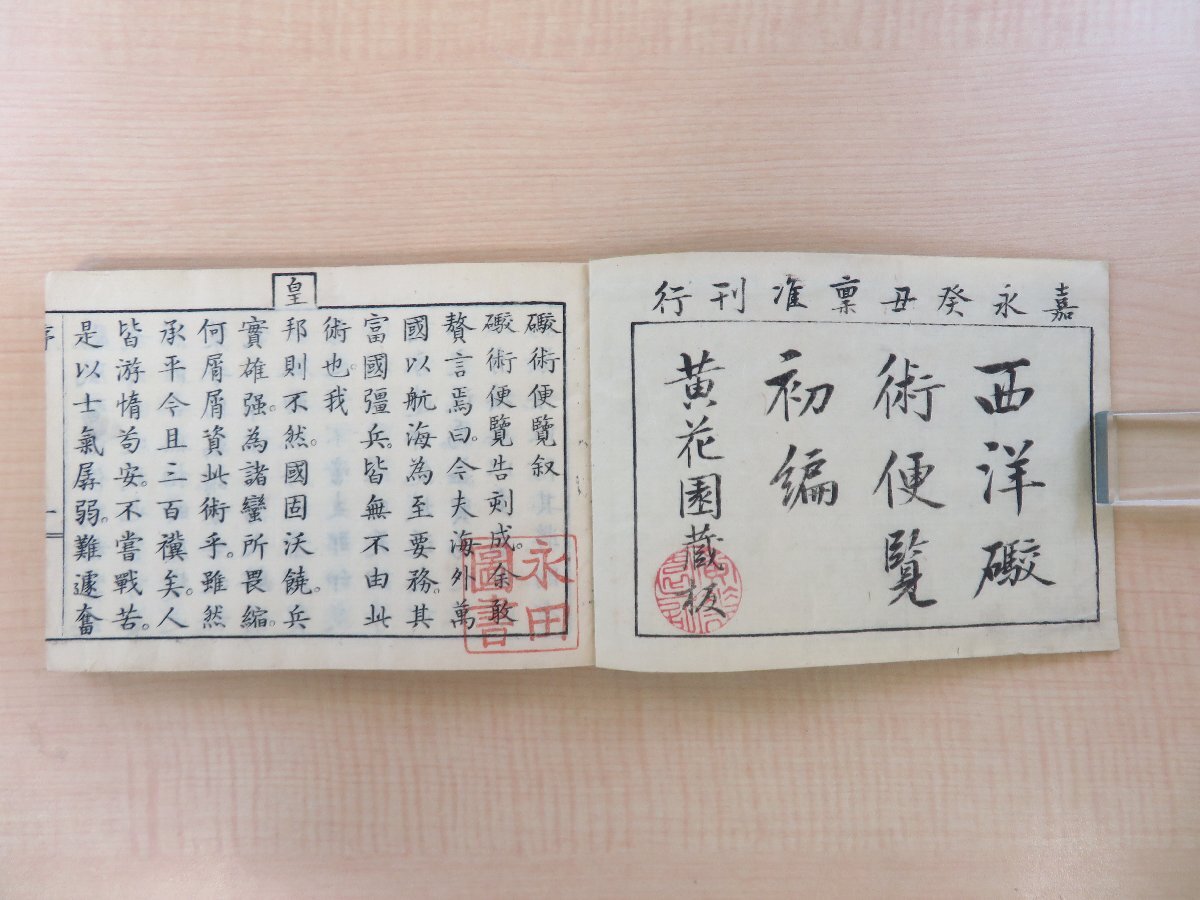 嘉永癸丑稟准刊行
西洋礮
術便覽
初編
黄花園藏板
礮術便覽叙
礮術便覽告刻成。余敢
贅言焉。曰。今夫海外萬
國以航海為至要務。其
富國彊兵。皆無不由此
術也。我
皇
邦則不然。國固沃饒。兵
實雄强。為諸蠻所畏縮。
何屑屑資此術乎。雖然
承平今且三百禩矣。人
皆游惰苟安。不嘗戰苦。
是以士氣孱弱。難遽奮
序
一
永田
圖書